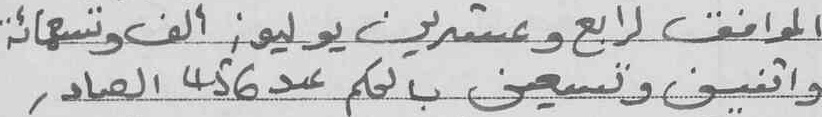 الموافق لرابع وعشرين يوليوز ألف وتسعمائة
واثنين وتسعين بالحكم عدد 456 الصادر